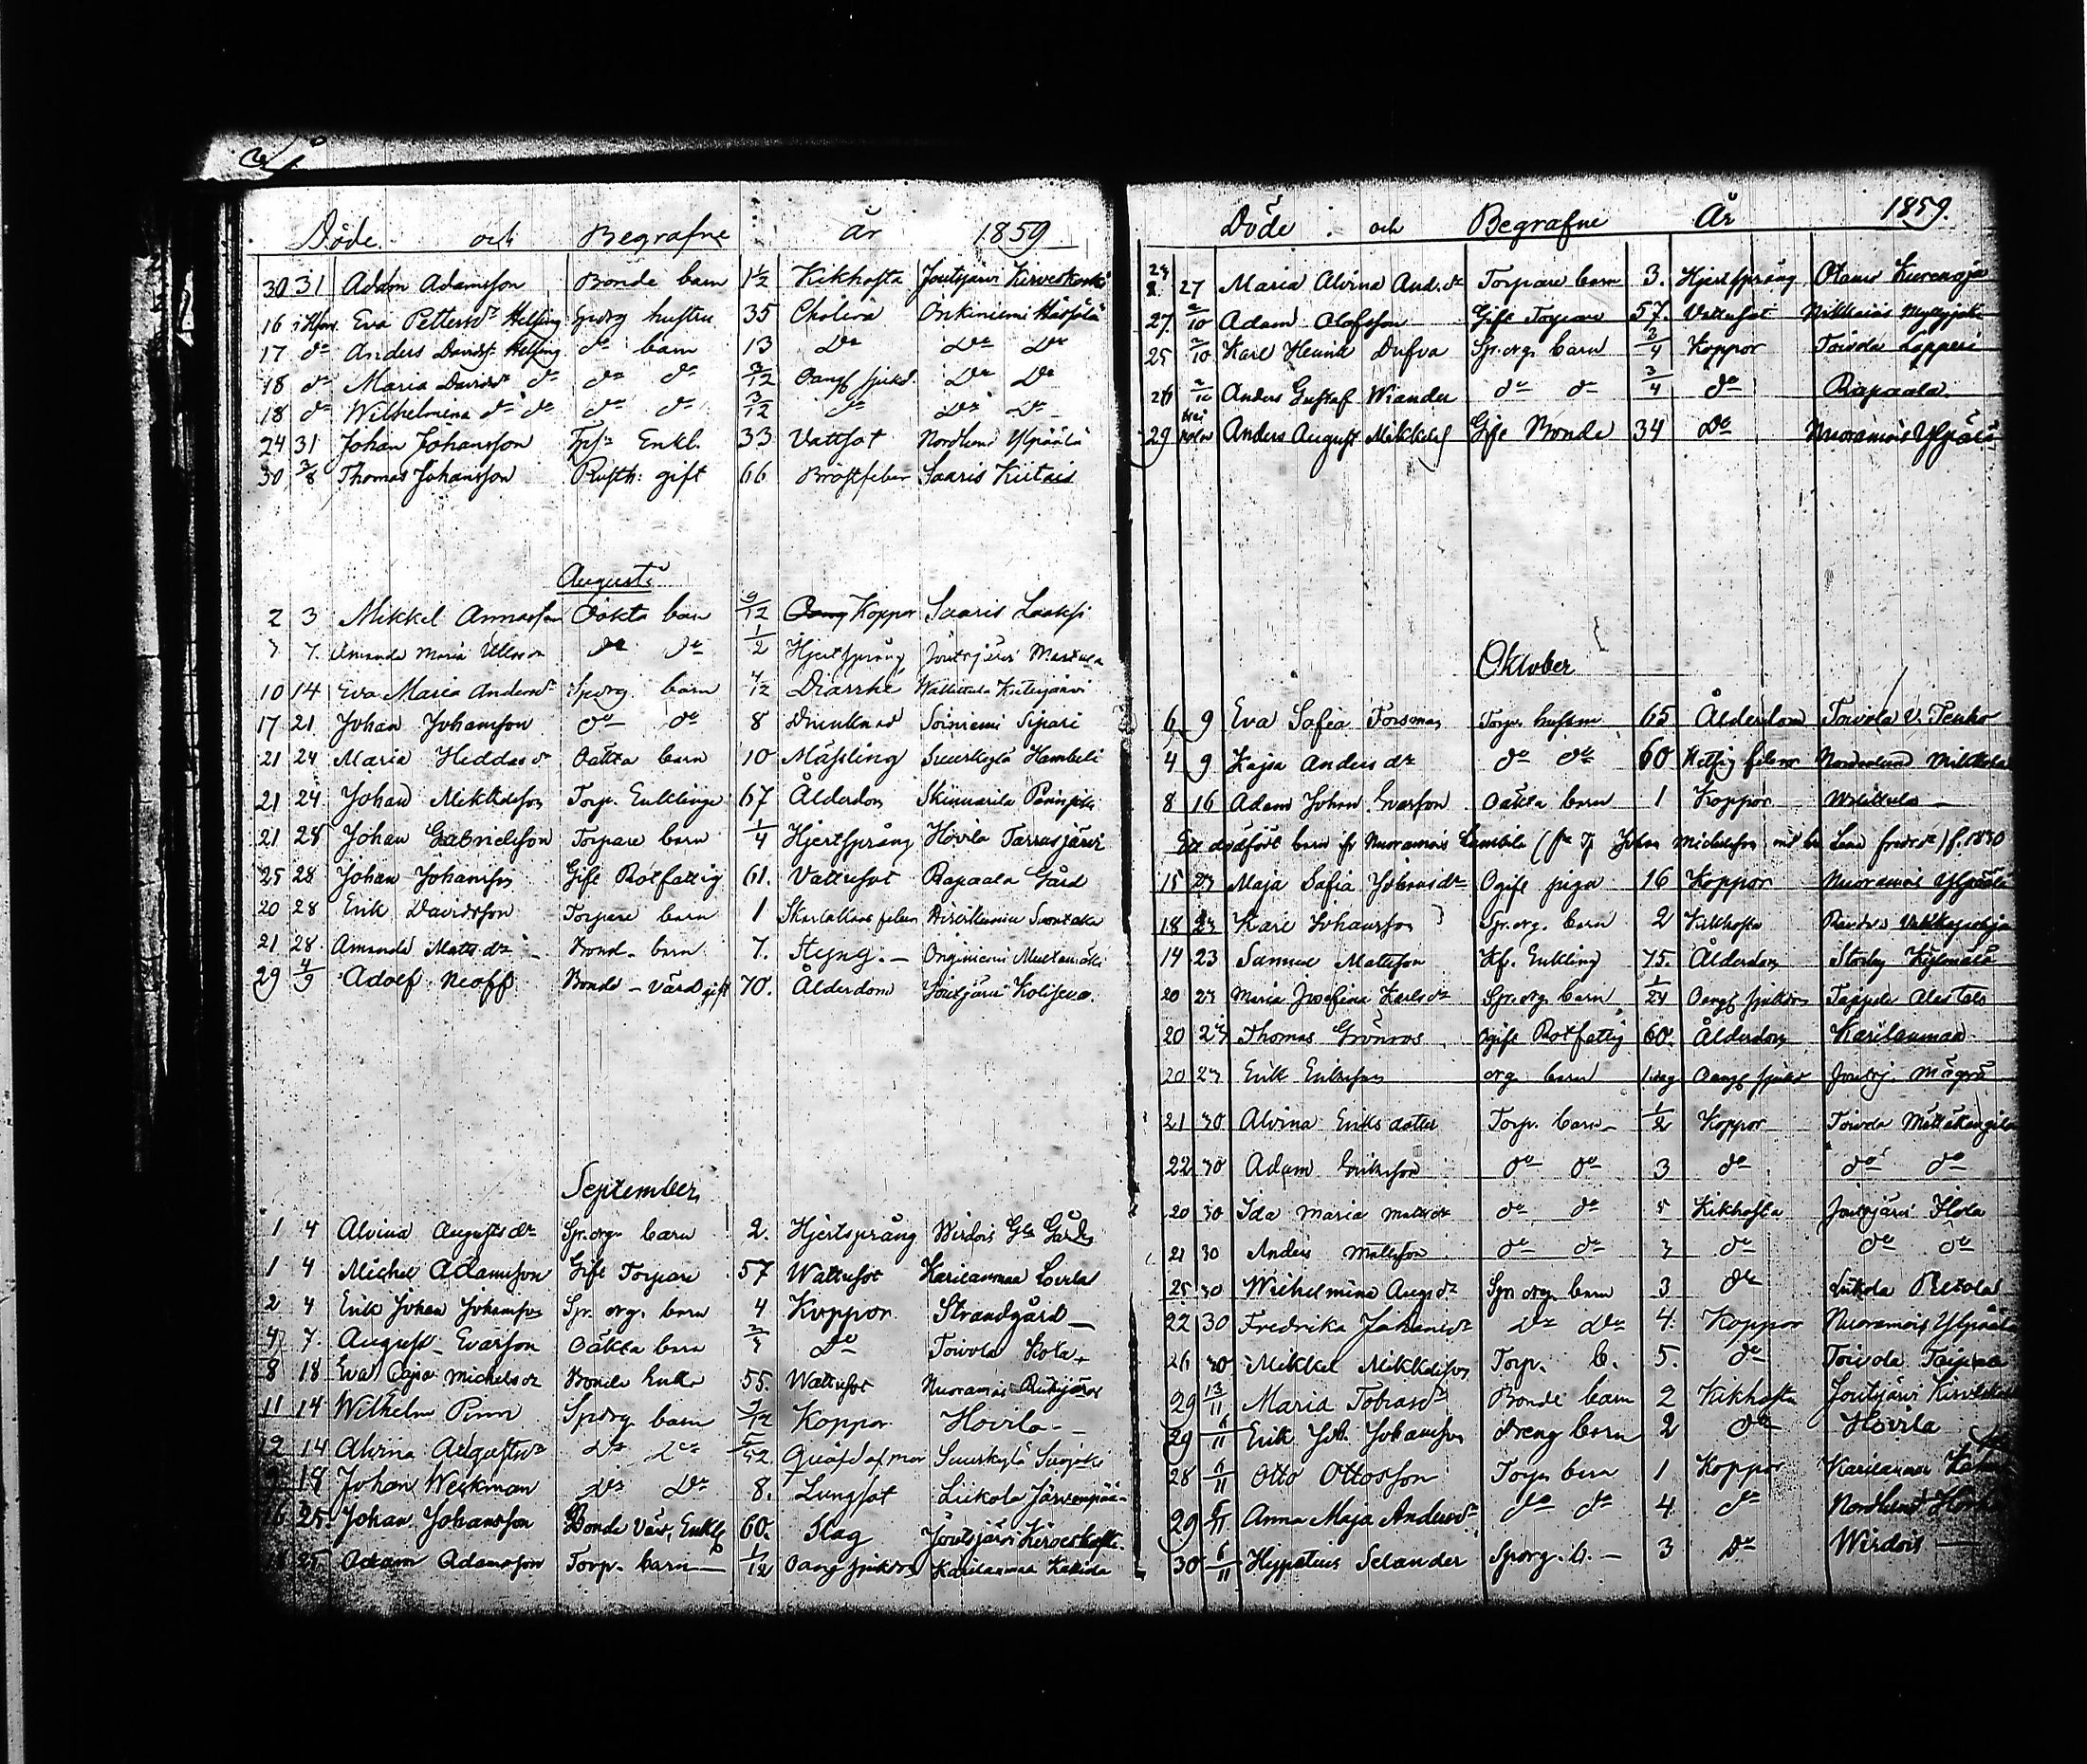 Döde och Begrafne år 1859
30 31 Adam Adamsson Bonde barn 1½ Kikhosta Joutsjärvi Kirveskoski
16 Eva Petters dr Helsing husttru 35 Cholera Onkiniemi
17 do Anders Davidss. Helsing do barn 13 Do Do Do
18 do Maria Davidsdr do do do 3/12 Oangf sjukd. Do Do
18 do Wilhelmina do do do do 3/12 do Do Do
24 31 Johan Johansson Enkl. 33 Vattsot Nordlund Ylpäälä
30 2/8 Thomas Johansson Rusth: gift 66 Bröstfeber Saaris
Augusti
2 3 Mikkel Annasson Oäkta barn 9/12 Koppor Saaris
7 7 Amanda Maria Ullasdr do do 1/2 Hjertsprång Joutsjärvi Marttila
10 14 Eva Maria Andersdr Sporg. barn 4/12 Diarrhé
17 21 Johan Johansson do do 8 Drunknad Soiniemi Sipari
21 24 Maria Heddasdr Oäkta barn 10 Mässling
21 24 Johan Mikkelsson Torp. Enkling 67 Ålderdom Skinnarila
21 28 Johan Gabrielsson Torpare barn 1/4 Hjertsprång Hovila Tarusjärvi
25 28 Johan Johansson Gift Rotfattig 61. Vattusot Rapaala Gård
20 28 Erik Davidsson Torpare barn 1 Skarlakans feber
21 28 Amanda Mattsdr Bond. barn 7. Styng. —
29 4/9 Adolf Neoff Bonde - värd gift 70. Ålderdom Joutsjärvi
September
1 4 Alvina Augustsdr Sp. org. barn 2. Hjertsprång Wirdois Gård
1 4 Michel Adamsson Gift Torpare 57 Wattusot Karilanmaa
2 4 Erik Johan Johansson Sp. org. barn 4 Koppor Strandgård —
4 7. August Evasson Oäkta barn do Toivola Kola
8 18 Eva Caja Michelsdr Bonde Enka 55. Wattusot Nuoramois
11 14 Wilhelm Sporg barn Koppor Hovila - -
12 14 Alvina Do Do Qväfd af mor
18 Johan Weckman Do Do 8. Lungsot Liikola Järvenpää
16 25 Johan Johansson Bonde Värd, Enkl 60. Slag Joutsjärvi
25 Adam Adamsson Torp. barn — 1/12 Oang sjukd Karilanmaa
Döde och Begrafne År 1859.
27 Maria Alvina And.dr Torpare barn 3. Hjertsprång
27 2/10 Adam Olofsson Gift Torpare 57. Vattusot
25 2/10 Karl Henrik Dufva Sp. org. barn 3/4 Koppor Toivola
26 2/10 Anders Gustaf Wiander do do 3/4 do Rapaala.
29 Anders August Mikkelss Gift Bonde 34 do Nuoramois Ylpäälä
Oktober
6 9 Eva Sofia Forsman Torp. hustru 65 Ålderdom Toivola
4 9 Kajsa Andersdr do do 60 Hetsig feber Nordenlund
8 16 Adam Johan Evasson Oäkta barn 1 Koppor
Ett dödfödt barn fr Nuoramois
15 23 Maja Sofia Johansdr Ogift piga 16 Koppor Nuoramois Ylpäälä
18 23 Karl Johansson Sp. org. barn 2 Kikhosta
14 23 Samuel Mattsson Enkling 75. Ålderdom Storby
20 23 Maria Josefina Karlsdr Sp. org. barn 1/24 Oangf sjukdom
20 23 Thomas Grönroos Ogift Rotfattig 60. Ålderdom Karilanmaa
20 23 Erik Eriksson org. barn 1 dag Oangf sjukd
21 30 Alvina Eriksdotter Torp. barn — 1/2 Koppor Toivola
22 30 Adam Eriksson do do 3 do do do
20 30 Ida Maria Mattsdr do do 5 Kikhosta Joutsjärvi
21 30 Anders Mattsson do do 3 do do do
25 30 Wilhelmina Augdr Sp. org. barn 3 do Liikola
22 30 Fredrika Johansdr Do Do 4. Koppor Nuoramois Ylpäälä
26 30 Mikkel Mikkelsson Torp. b. 5. do Toivola
29 13/11 Maria Tobiasdr Bonde barn 2 Kikhosta Joutsjärvi
29 6/11 Erik Joh. Johansson dreng barn 2 do Hovila
28 6/11 Otto Ottosson Torp. barn 1 Koppor Karilanmaa
29 6/11 Anna Maja Andersdr do do 4 do Nordlund
30 6/11 Hyppatius Selander Sporg. b. — 3 Do Wirdois —